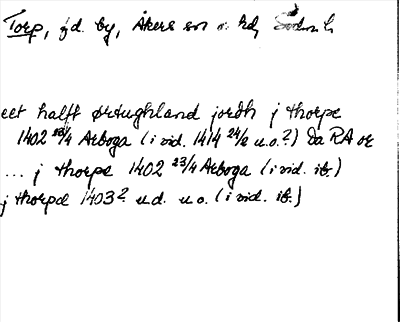 Torp, fd. by, Åkers sn o. hd, Södm. l.
eet halfft ørtughland jordh j thorpe
1402 23/4 Arboga (i vid. 1414 24/2 u.o.?) Da RA or
... j thorpe 1402 23/4 Arboga (i vid. ib.)
j thorpe 1403? u.d. u.o. (i vid. ib.)